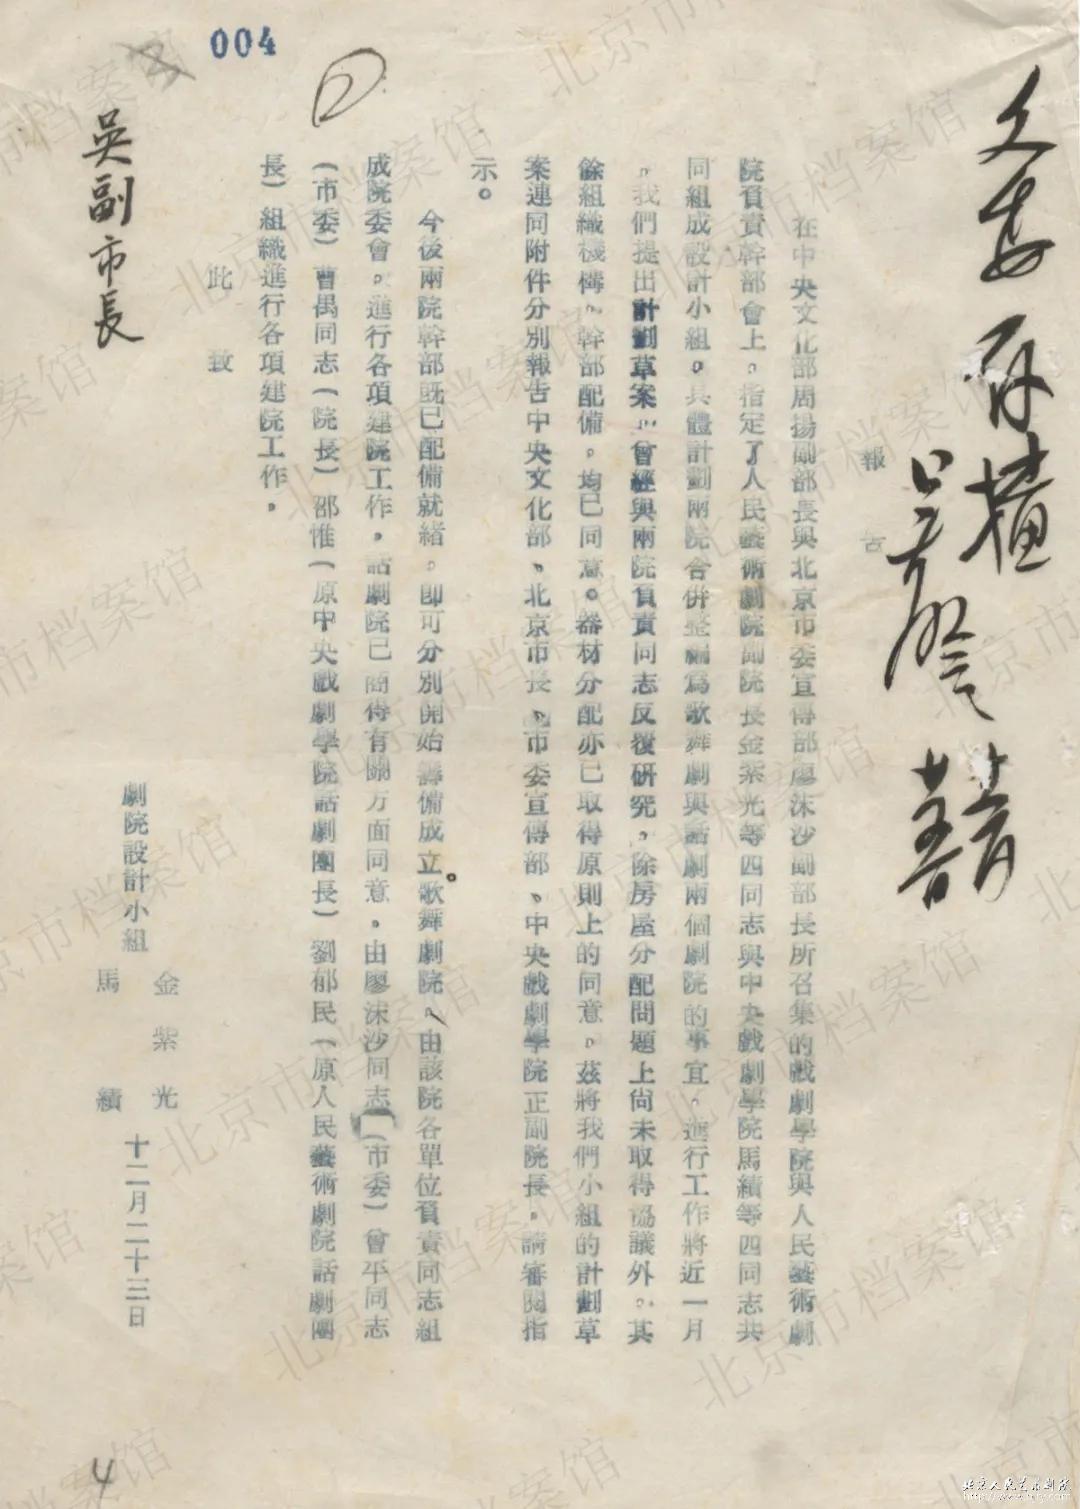 004
報告
在中央文化部周揚副部長與北京市委宣傳部廖沫沙副部長所召集的戲劇學院與人民藝術劇
院負責幹部會上。指定了人民藝術劇院副院長金紫光等四同志與中央戲劇學院馬績等四同志共
同組成設計小組。具體計劃兩院合併整編爲歌舞劇與話劇兩個劇院的事宜。進行工作將近一月
。我們提出計劃草案。曾經與兩院負責同志反覆研究。除房屋分配問題上尚未取得協議外。其
餘組織機構。幹部配備。均已同意。器材分配亦已取得原則上的同意。茲將我們小組的計劃草
案連同附件分別報告中央文化部、北京市長、市委宣傳部、中央戲劇學院正副院長。請審閱指
示。
今後兩院幹部既已配備就緒。即可分別開始籌備成立歌舞劇院。由該院各單位負責同志組
成院委會。進行各項建院工作。話劇院已商得有關方面同意。由廖沫沙同志(市委)曾平同志
(市委)曹禺同志(院長)邵惟(原中央戲劇學院話劇團長)劉郁民(原人民藝術劇院話劇團
長)組織進行各項建院工作。
此致
吳副市長
劇院設計小組
金紫光
馬績
十二月二十三日
4
北京市档案馆
北京人民艺术剧院